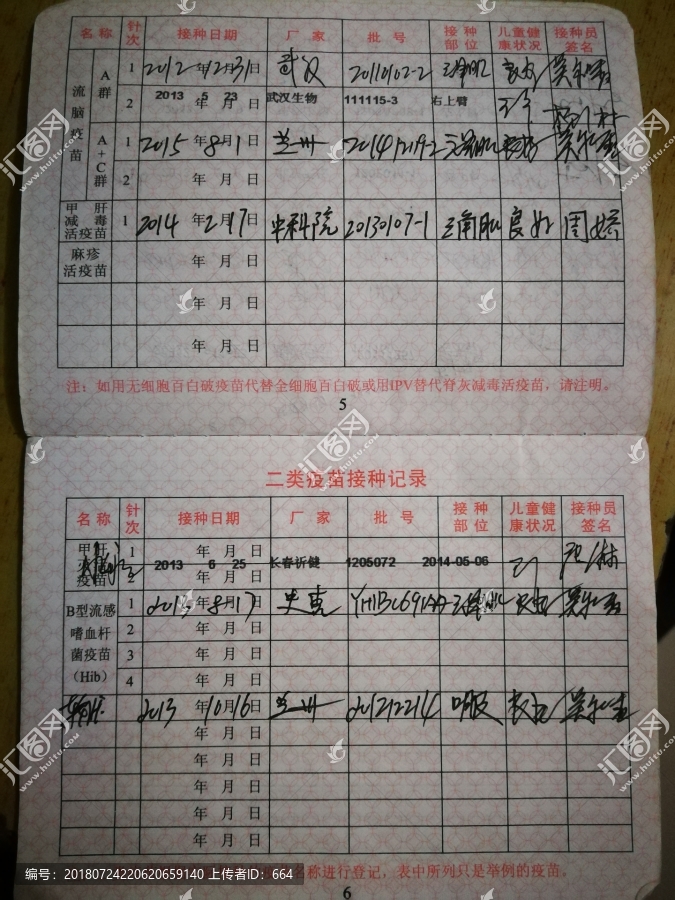 名称 针次 接种日期 厂家 批号 接种部位 儿童健康状况 接种员签名
流脑疫苗 A群 1 2012年12月31日 武汉 20110102-2 三角肌 良好
2 2013 5 23 年 月 日 武汉生物 111115-3 右上臂
A+C群 1 2015年8月1日 兰州 三角肌 良好
2 年 月 日
甲肝减毒活疫苗 1 2014年2月17日 中科院 20130107-1 三角肌 良好
麻疹活疫苗 年 月 日
年 月 日
年 月 日
注：如用无细胞百白破疫苗代替全细胞百白破或用IPV替代脊灰减毒活疫苗，请注明。
5
二类疫苗接种记录
名称 针次 接种日期 厂家 批号 接种部位 儿童健康状况 接种员签名
甲肝灭活疫苗 1 年 月 日
2 2013 6 25 年 月 日 长春祈健 1205072 2014-05-06
B型流感嗜血杆菌疫苗（Hib） 1 2013年8月17日 史克 三角肌 良好
2 年 月 日
3 年 月 日
4 年 月 日
2013年10月16日 兰州 口服 良好
年 月 日
年 月 日
年 月 日
年 月 日
年 月 日
名称进行登记，表中所列只是举例的疫苗。
6
编号：20180724220620659140 上传者ID：664
汇图网
www.huitu.com